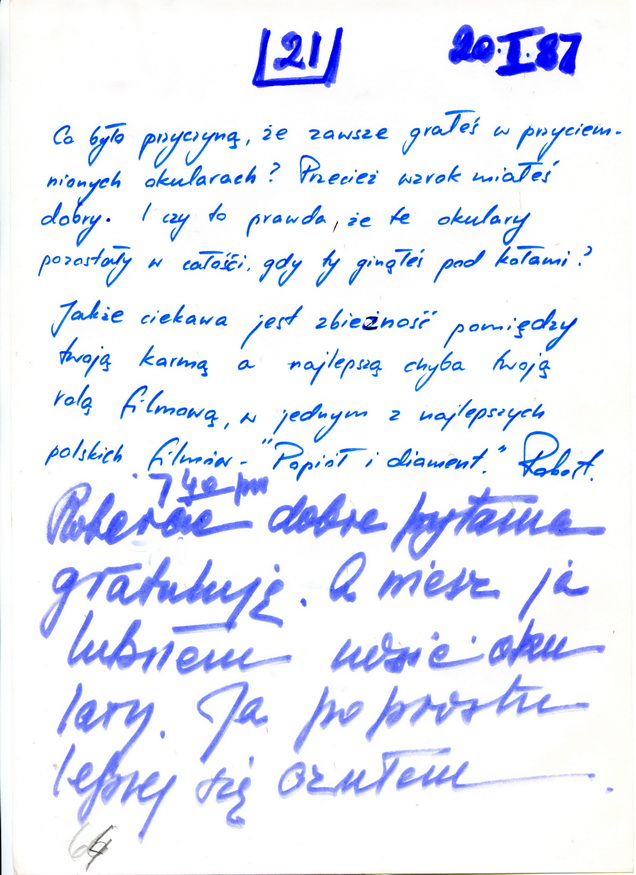 21 20.I.87
Co było przyczyną, że zawsze grałeś w przyciem-
nionych okularach? Przecież wzrok miałeś
dobry. I czy to prawda, że te okulary
pozostały w całości, gdy ty ginąłeś pod kołami?
Jakże ciekawa jest zbieżność pomiędzy
twoją karmą a najlepszą chyba twoją
rolą filmową, w jednym z najlepszych
polskich filmów - "Popiół i diament." Robert.
7 40 pm
Robercie dobre pytania
gratuluję. A wiesz ja
lubiłem nosić oku
lary. Ja po prostu
lepiej się czułem
64